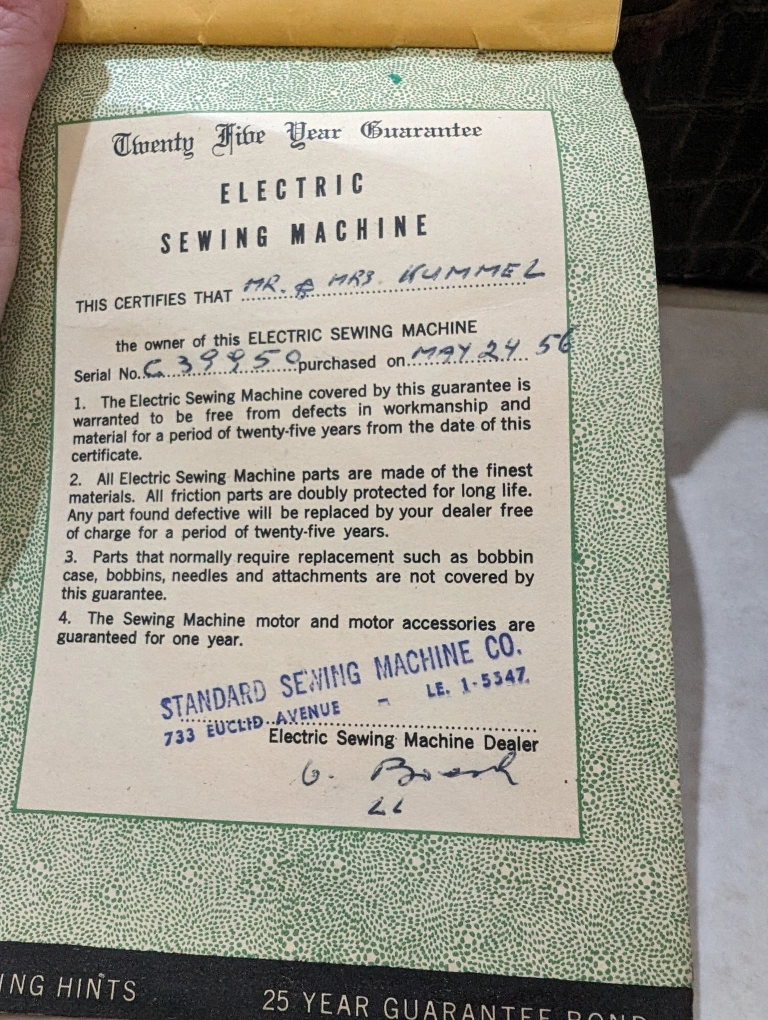 Twenty Five Year Guarantee
ELECTRIC
SEWING MACHINE
THIS CERTIFIES THAT MR. & MRS. KUMMEL
the owner of this ELECTRIC SEWING MACHINE
Serial No. C 39950 purchased on MAY 24 56
1. The Electric Sewing Machine covered by this guarantee is
warranted to be free from defects in workmanship and
material for a period of twenty-five years from the date of this
certificate.
2. All Electric Sewing Machine parts are made of the finest
materials. All friction parts are doubly protected for long life.
Any part found defective will be replaced by your dealer free
of charge for a period of twenty-five years.
3. Parts that normally require replacement such as bobbin
case, bobbins, needles and attachments are not covered by
this guarantee.
4. The Sewing Machine motor and motor accessories are
guaranteed for one year.
STANDARD SEWING MACHINE CO.
733 EUCLID AVENUE - LE. 1-5347.
Electric Sewing Machine Dealer
ING HINTS
25 YEAR GUARANTEE BOND